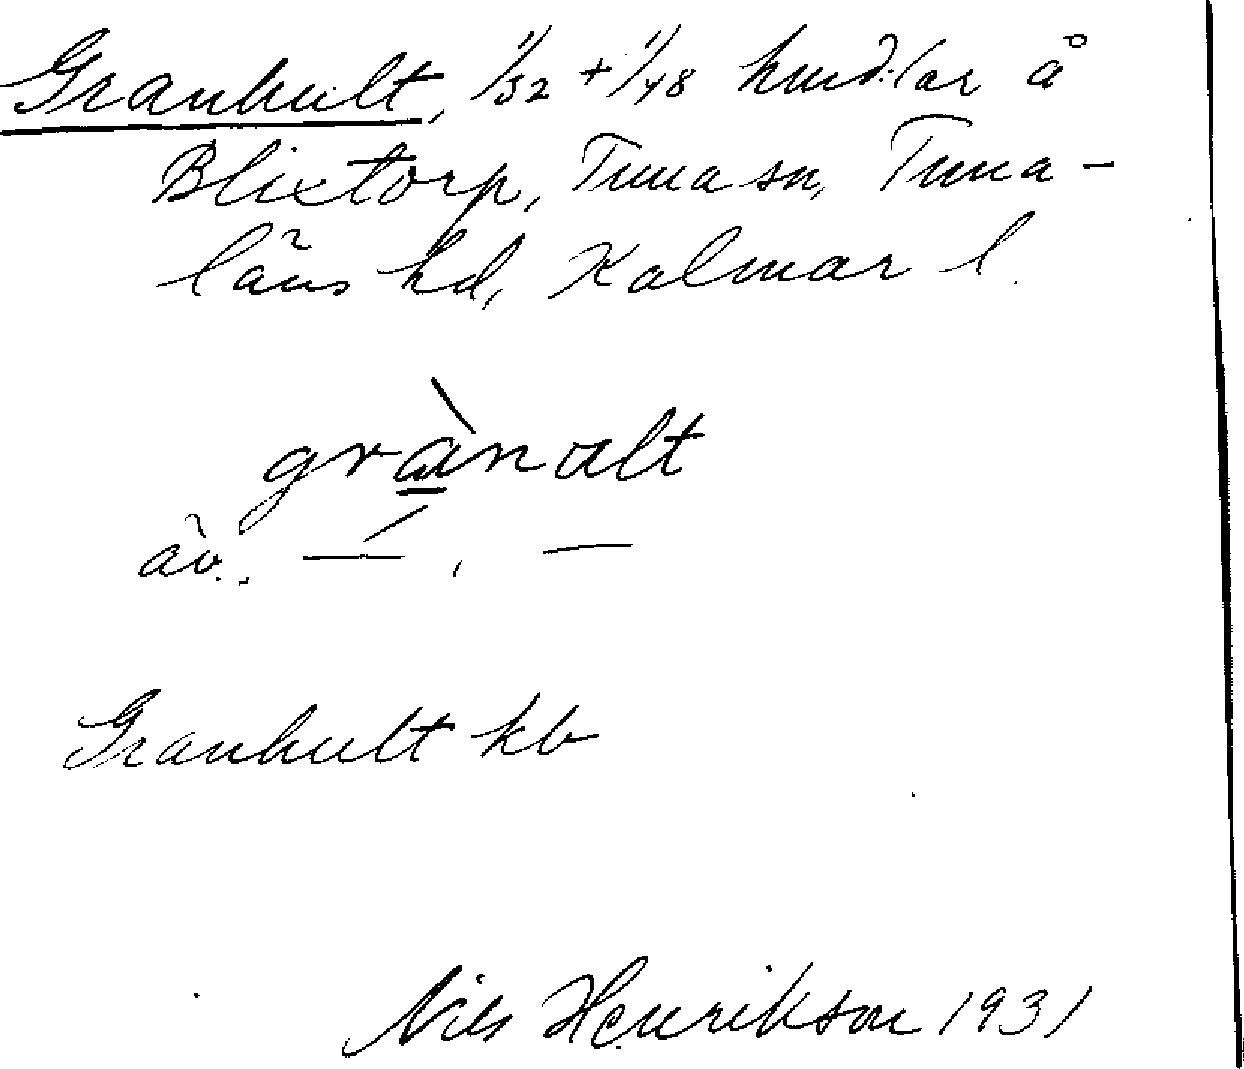 Granhult, 1/32 + 1/48 hmd:lar å
Blixtorp, Tuna sn, Tuna-
läns hd, Kalmar l.
grànalt
äv. —́ , —
Granhult kb
Nils Henrikson 1931